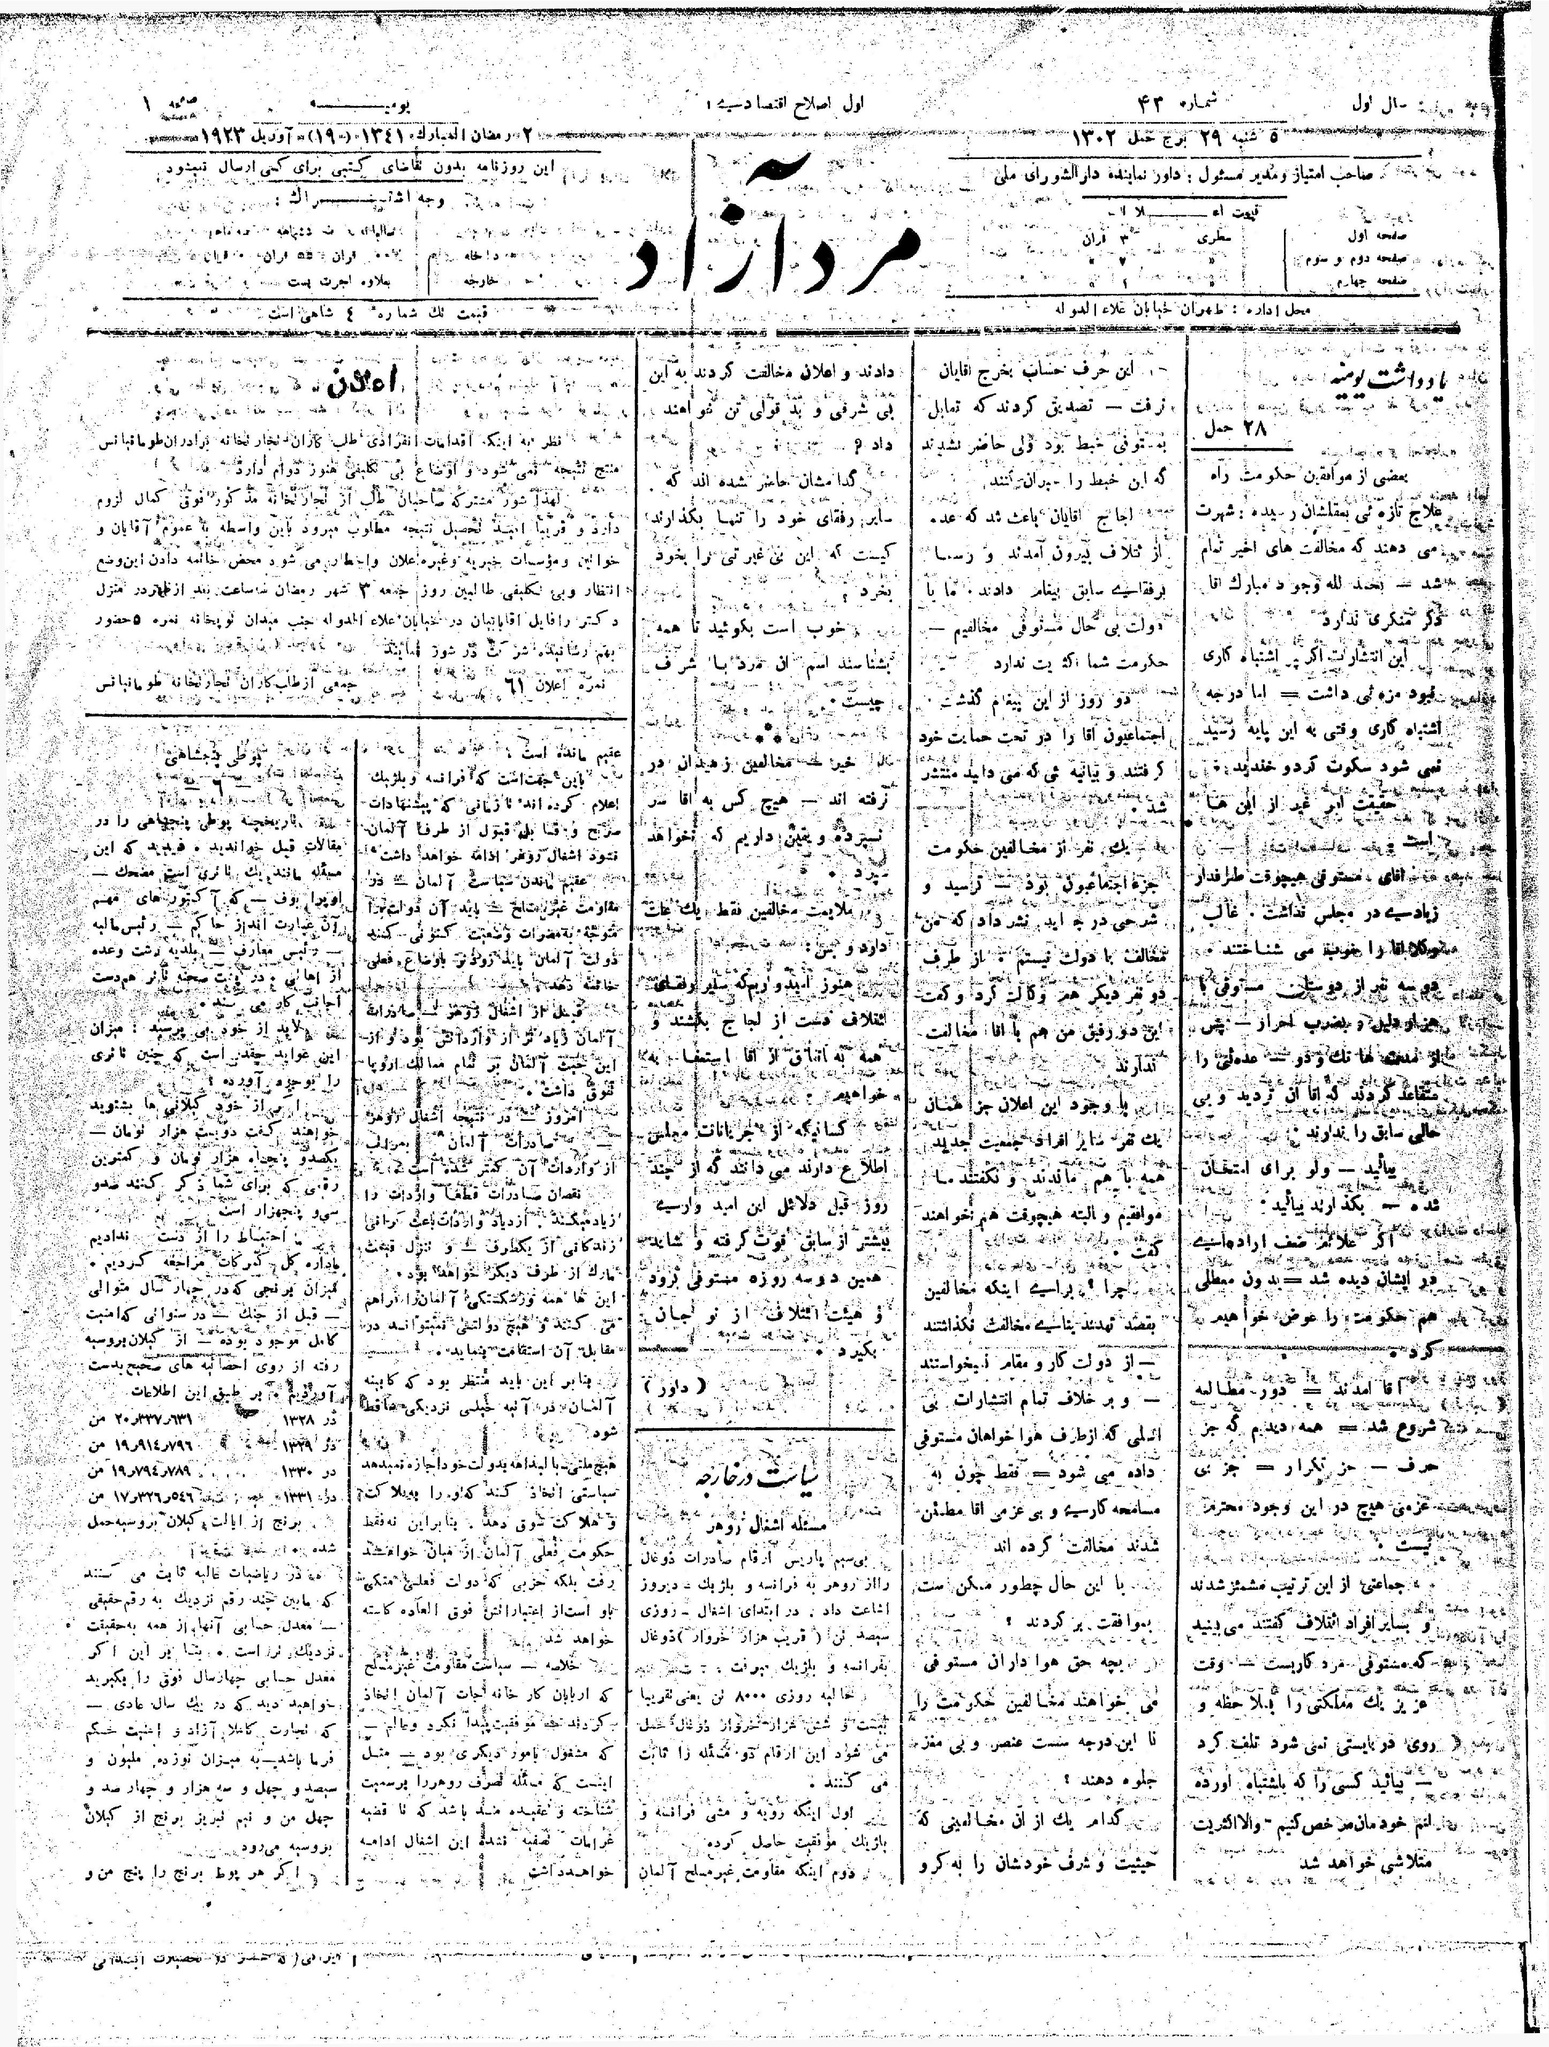 سال اول
شماره ۴۳
اول اصلاح اقتصادی
یومیه
صفحه ۱
۵ شنبه ۲۹ برج حمل ۱۳۰۲
۲ رمضان المبارك ۱۳۴۱ (۱۹) آوریل ۱۹۲۳
صاحب امتیاز و مدیر مسئول : داور نماینده دارالشورای ملی
صفحه اول سطری ۳ قران
صفحه دوم و سوم
صفحه چهارم
محل اداره : طهران خیابان علاء الدوله
مرد آزاد
این روزنامه بدون تقاضای کتبی برای کسی ارسال نمیشود
وجه اشتراك :
داخله
خارجه
بعلاوه اجرت پست
قیمت تك شماره ۴ شاهی است
یادداشت یومیه
۲۸ حمل
بعضی از موافقین حکومت راه
علاج تازه ئی بعقلشان رسیده : شهرت
می دهند که مخالفت های اخیر تمام
شد — بحمد لله وجود مبارك اقا
دگر منکری ندارد
این انتشارات اگر بر اشتباه کاری
نبود مزه ئی داشت = اما درجه
اشتباه کاری وقتی به این پایه رسید
نمی شود سکوت کرد و خندید
حقیقت امر غیر از این ها
است
اقای مستوفی هیچوقت طرفدار
زیادی در مجلس نداشت . غالب
وکلا اقا را خوب می شناختند
دو سه نفر از دوستان مستوفی با
هزار دلیل و بضرب احراز — پس
از مدت ها تك و دو — عده ئی را
متقاعد کردند که اقا آن تردید و بی
حالی سابق را ندارند
بیائید — ولو برای امتحان
شده — بگذارید بیائید :
اگر علائم ضعف اراده ای
در ایشان دیده شد = بدون معطلی
هم حکومت را عوض خواهیم
کرد .
اقا امدند = دوره مطالبه
شروع شد = همه دیدیم که جز
حرف — جز تکرار = جز بی
عزمی هیچ در این وجود محترم
نیست .
جماعتی از این ترتیب مشمئز شدند
و بسایر افراد ائتلاف گفتند می بینید
که مستوفی مرد کار نیست — وقت
عزیز یك مملکتی را بملاحظه و
روی در بایستی نمی شود تلف کرد
— بیائید کسی را که باشتباه اورده
ایم خودمان مرخص کنیم — والا اکثریت
متلاشی خواهد شد
این حرف حساب بخرج اقایان
نرفت — تصدیق کردند که تمایل
به مستوفی خبط بود ولی حاضر نشدند
که این خبط را جبران کنند
لجاج اقایان باعث شد که عده
از ئتلاف بیرون آمدند و رسما
برفقای سابق پیغام دادند . ما با
دولت بی حال مستوفی مخالفیم —
حکومت شما اکثریت ندارد
دو روز از این پیغام گذشت
اجتماعیون آقا را در تحت حمایت خود
گرفتند و بیانیه ئی که می دانید منتشر
شد .
یك نفر از مخالفین حکومت
جزء اجتماعیون بود — ترسید و
شرحی در جراید نشر داد که من
مخالف با دولت نیستم . از طرف
دو نفر دیگر هم وکالت کرد و گفت
این دو رفیق من هم با اقا مخالفت
ندارند
با وجود این اعلان جز همان
یك نفر سایر افراد جمعیت جدید
همه با هم ماندند و نگفتند ما
موافقیم و البته هیچوقت هم نخواهند
گفت .
چرا ؟ برای اینکه مخالفین
بقصد تهدید بنای مخالفت نگذاشتند
— از دولت کار و مقام نمیخواستند
— و بر خلاف تمام انتشارات بی
اصلی که از طرف هوا خواهان مستوفی
داده می شود = فقط چون به
مسامحه کاری و بی عزمی اقا مطمئن
شدند مخالفت کرده اند
با این حال چطور ممکن است
بموافقت بر گردند ؟
بچه حق هوا داران مستوفی
می خواهند مخالفین حکومت را
تا این درجه سست عنصر و بی مغز
جلوه دهند ؟
کدام یك از ان مخالفینی که
حیثیت و شرف خودشان را به گرو
دادند و اعلان مخالفت کردند به این
بی شرفی و بد قولی تن خواهند
داد ؟
کدامشان حاضر شده اند که
سایر رفقای خود را تنها بگذارند
کیست که این بی غیرتی را بخود
بخرد ؟
خوب است بگوئید تا همه
بشناسند اسم ان مرد با شرف
چیست .
خیر — مخالفین ز میدان در
نرفته اند — هیچ کس به اقا سر
نسپرده و یقین داریم که نخواهد
سپرد .
هنوز امیدواریم که سایر رفقای
ائتلاف دست از لجاج بکشند و
همه به اتفاق از اقا استعفا به
خواهیم .
کسانیکه از جریانات مجلس
اطلاع دارند می دانند که از چند
روز قبل دلائل این امیدواری
بیشتر از سابق قوت گرفته و شاید
همین دو سه روزه مستوفی برود
و هیئت ائتلاف از نو جان
بگیرد .
( داور )
سیاست در خارجه
مسئله اشغال روهر
بی سیم پاریس ارقام صادرات ذوغال
را از روهر به فرانسه و بلژيك دیروز
اشاعت داد . در ابتدای اشغال روزی
سیصد تن ( قریب هزار خروار ) ذوغال
بفرانسه و بلژيك میرفت
حالیه روزی ۸۰۰۰ تن یعنی تقریبا
بیست و شش هزار خروار ذوغال حمل
می شود این ارقام دو مسئله را ثابت
می کنند .
اول اینکه رویه و مشی فرانسه و
بلژيك موفقیت حاصل کرده
دوم اینکه مقاومت غیر مسلح آلمان
اعلان
نظر به اینکه اقدامات انفرادی طلب کاران تجارتخانه برادران طومانیانس
منتج نتیجه نمی شود و اوضاع بی تکلیفی هنوز دوام دارد
لهذا شور مشترکه صاحبان طلب از تجارتخانه مذکور فوق کمال لزوم
دارد و قریبا امید تحصیل نتیجه مطلوب میرود باین واسطه به عموم آقایان و
خوانین و مؤسسات خیریه و غیره اعلان و اخطار می شود محض خاتمه دادن این وضع
انتظار و بی تکلیفی طالبین روز جمعه ۳ شهر رمضان سه ساعت بعد از ظهر در منزل
دکتر رافایل اقایانیان در خیابان علاء الدوله جنب میدان توپخانه نمره ۵ حضور
بهم رسانیده شرکت در شور نمایند
نمره اعلان ۶۱
جمعی از طلب کاران تجارتخانه طومانیانس
عقیم مانده است :
باین جهت است که فرانسه و بلژيك
اعلام کرده اند تا زمانی که پیشنهادات
صریح و قابل قبول از طرف آلمان
نشود اشغال روهر ادامه خواهد داشت
عقیم ماندن سیاست آلمان — در
مقاومت غیر مسلح — باید آن دولت را
متوجه به مضرات وضعیت کنونی کنند
دولت آلمان باید زودتر باوضاع فعلی
خاتمه دهد .
قبل از اشغال روهر — صادرات
آلمان زیاد تر از وارداتش بود و از
این حیث آلمان بر تمام ممالك اروپا
تفوق داشت .
امروز — در نتیجه اشغال روهر
— صادرات آلمان بمراتب
از واردات آن کمتر شده است
نقصان صادرات قطعا واردات را
زیاد میکند . ازدیاد واردات باعث گرانی
زندگانی از یکطرف — و تنزل قیمت
مارك از طرف دیگر خواهد بود .
این ها همه ورشکستگی آلمان را فراهم
می کنند و هیچ دولتی نمیتواند در
مقابل آن استقامت بنماید .
بنابر این باید منتظر بود که کابینه
آلمان در آتیه خیلی نزدیکی ساقط
شود
هیچ ملتی بالبداهه بدولت خود اجازه نمیدهد
سیاستی اتخاذ کند که او را بفلاکت
و هلاکت سوق دهد . بنابراین نه فقط
حکومت فعلی آلمان از میان خواهد
رفت بلکه حزبی که دولت فعلی متکی
باو است از اعتباراتش فوق العاده کاسته
خواهد شد
خلاصه — سیاست مقاومت غیر مسلح
که اربابان کار خانه جات آلمان اتخاذ
کردند نه موفقیت پیدا نکرد و عالم —
که مشغول بامور دیگری بود — مثل
اینست که مسئله تصرف روهر را برسمیت
شناخته و عقیده مند باشد که تا قضیه
غرامات تصفیه نشده این اشغال ادامه
خواهد داشت
پوطی پنجشاهی
— ۶ —
تاریخچه پوطی پنجشاهی را در
مقالات قبل خواندید . فهمیدید که این
مسئله مانند يك تاتری است مضحك —
اوپرا بوف — که آکتورهای مهم
آن عبارت اند از حاکم — رئیس مالیه
— رئیس معارف — بلدیه رشت و عده
از اهالی و در پشت صحنه تاتر هم دست
اجانب کار می کند .
لابد از خود می پرسید : میزان
این عواید چقدر است که چنین تاتری
را بوجود آورده ؟
اگر از خود گیلانی ها بشنوید
خواهند گفت دویست هزار تومان —
یکصد و پنجاه هزار تومان و کمترین
رقمی که برای شما ذکر کنند صد و
سی و پنجهزار است
ما احتیاط را از دست ندادیم
باداره کل گمرکات مراجعه کردیم .
میزان برنجی که در چهار سال متوالی
— قبل از جنك — در سنواتی که امنیت
کامل موجود بوده — از گیلان بروسیه
رفته از روی احصائیه های صحیح بدست
آوردیم . بر طبق این اطلاعات
در ۱۳۲۸ ۲۰٫۳۳۷٫۶۳۱ من
در ۱۳۲۹ ۱۹٫۹۱۴٫۷۹۶ من
در ۱۳۳۰ ۱۹٫۷۹۴٫۷۸۹ من
در ۱۳۳۱ ۱۷٫۳۲۶٫۵۴۶ من
برنج از ایالت گیلان بروسیه حمل
شده
در ریاضیات عالیه ثابت می کنند
که مابین چند رقم نزدیك به رقم حقیقی
— معدل حسابی آنها از همه به حقیقت
نزدیك تر است . بنا بر این اگر
معدل حسابی چهار سال فوق را بگیرید
خواهید دید که در يك سال عادی —
که تجارت کاملا آزاد و امنیت حکم
فرما باشد — به میزان نوزده ملیون و
سیصد و چهل و سه هزار و چهار صد و
چهل من و نیم تبریز برنج از گیلان
بروسیه می رود
اگر هر پوط برنج را پنج من و